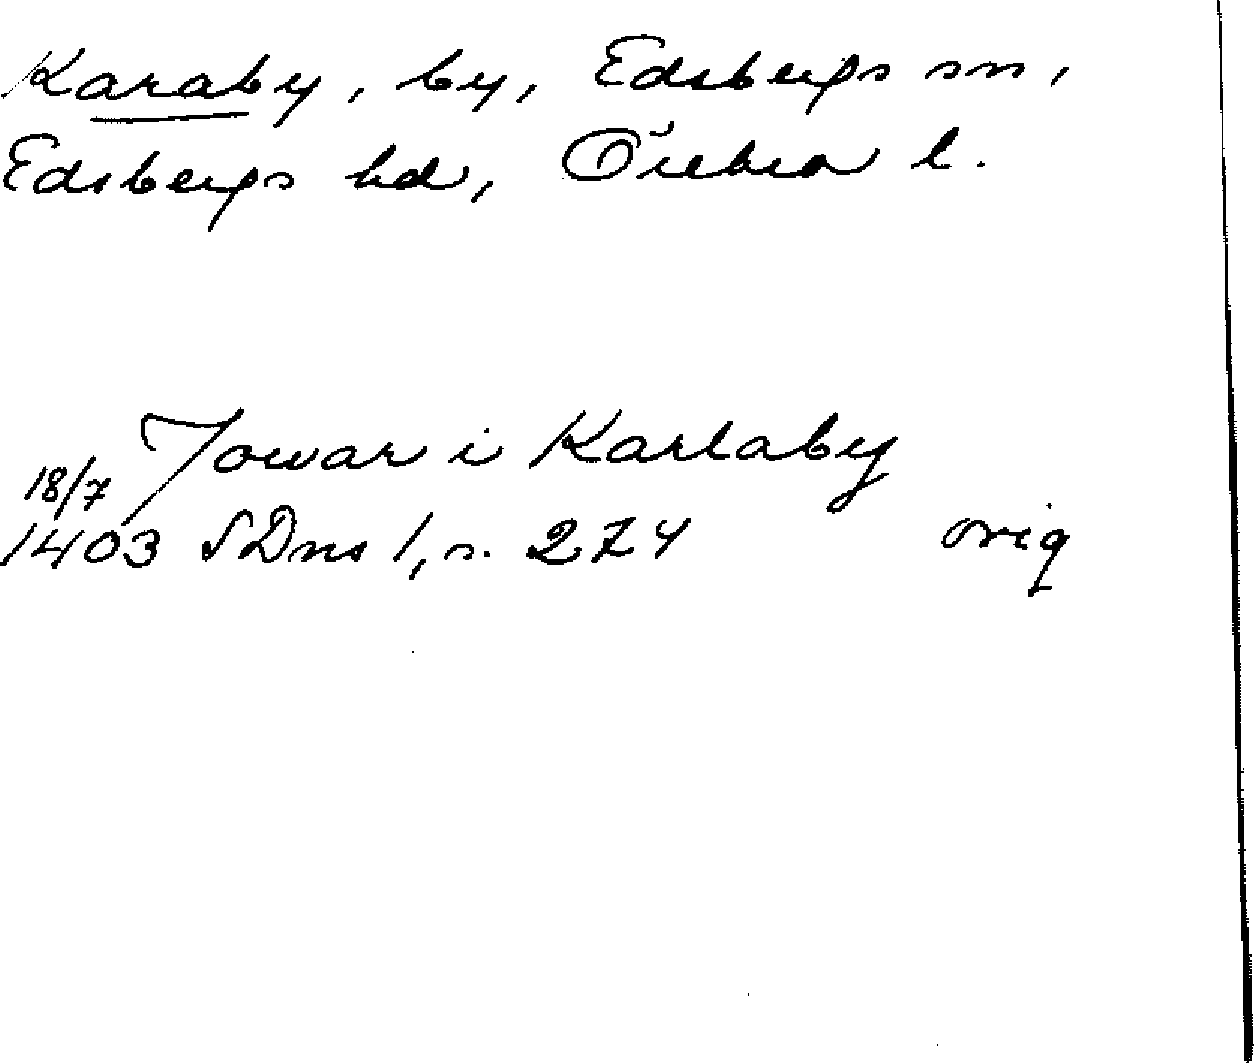 Karaby, by, Edsbergs sn,
Edsbergs hd, Örebro l.
Jowar i Karlaby
18/7
1403 SDns 1, s. 274 orig